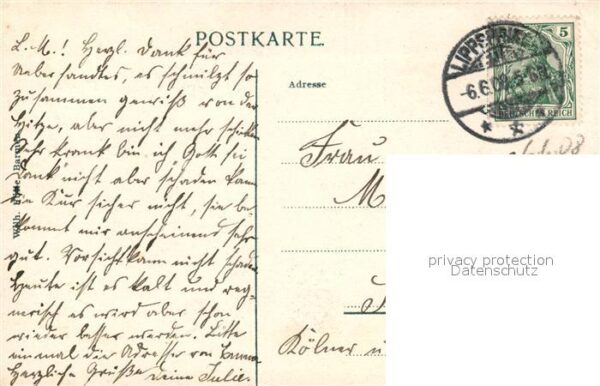 POSTKARTE.
L. M.! Herzl. Dank für
Uebersandtes, es schmilzt so
zusammen gewiß von der
Hitze, aber nicht mehr schicken
Sehr krank bin ich Gott sei
Dank nicht aber schaden kann
die Kur sicher nicht, sie be-
kommt mir anscheinend sehr
gut. Vorsicht kann nicht schaden
Heute ist es kalt und reg-
nerisch es wird aber schon
wieder besser werden. Bitte
einmal die Adresse von
Herzliche Grüße Deine Julie.
Adresse
Frau
M
Kölner
5
DEUTSCHES REICH
LIPPSPRINGE
-6.6.08
6.6.08
Wilh. Barmen
privacy protection
Datenschutz